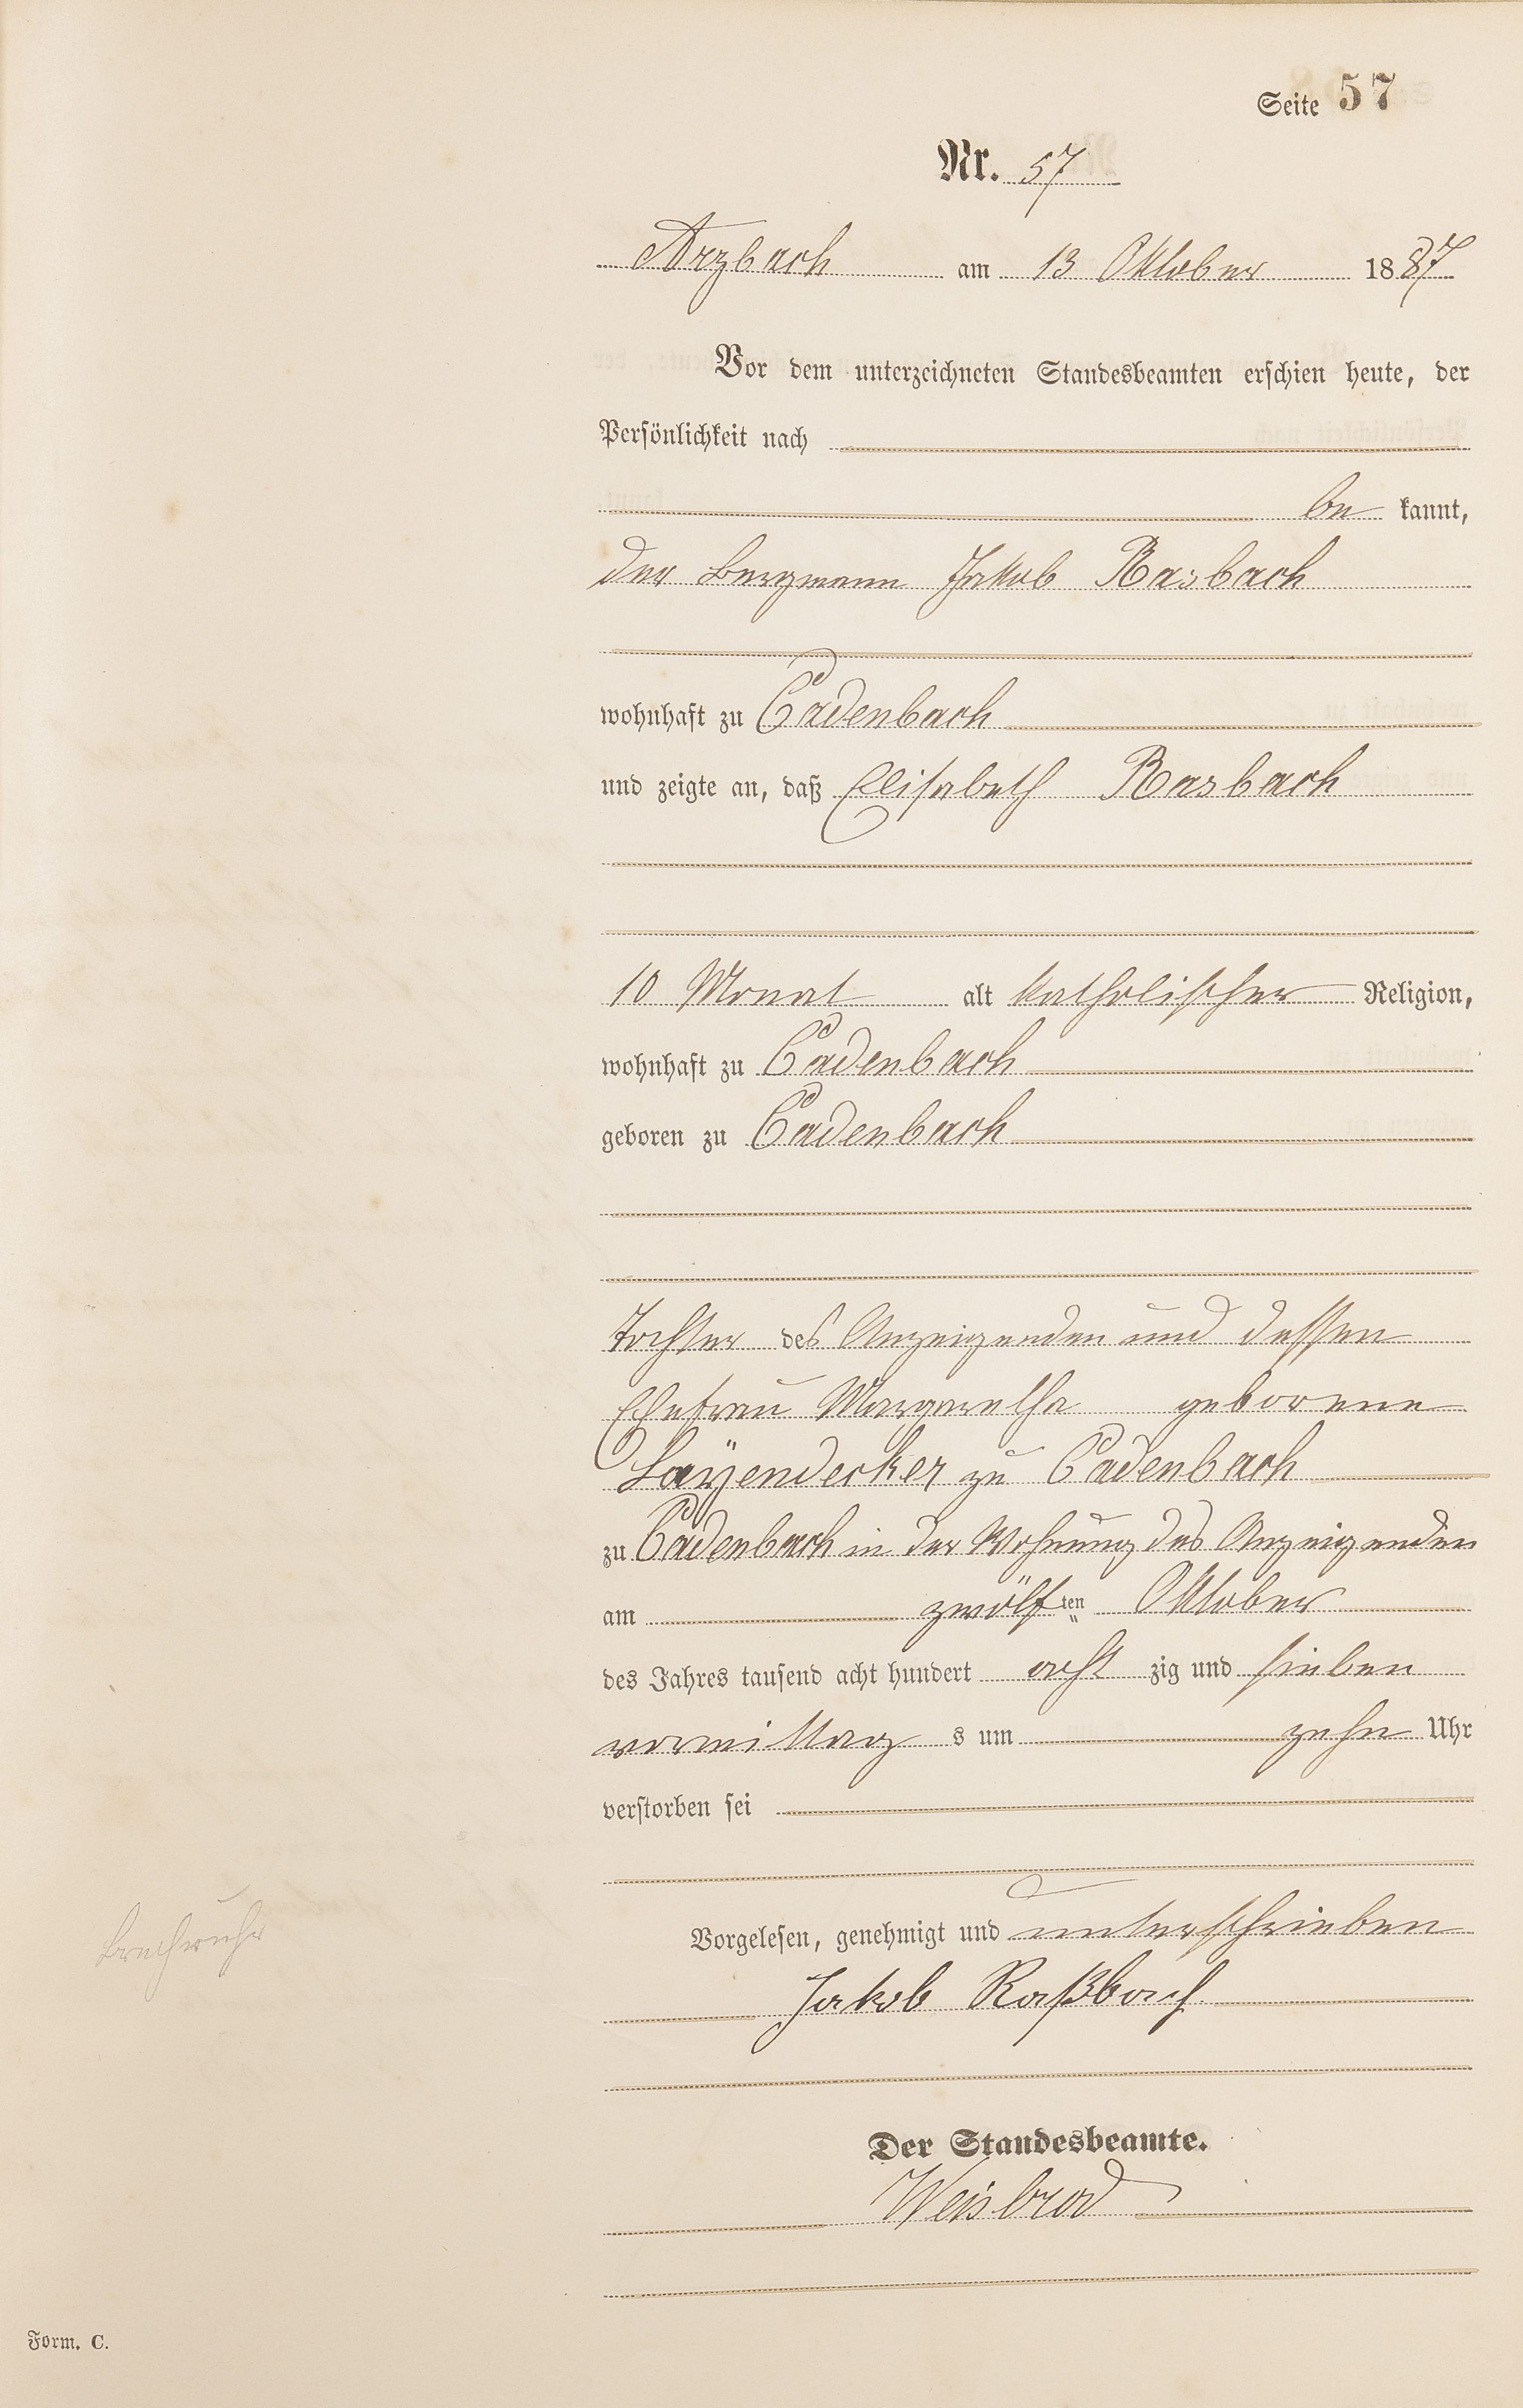 Seite 57
Nr. 57
Arzbach am 13 Oktober 1887
Vor dem unterzeichneten Standesbeamten erschien heute, der
Persönlichkeit nach
be kannt,
der Bergmann Jakob Rasbach
wohnhaft zu Cadenbach
und zeigte an, daß Elisabeth Rasbach
10 Monat alt katholischer Religion,
wohnhaft zu Cadenbach
geboren zu Cadenbach
Tochter des Anzeigenden und dessen
Ehefrau Margaretha geborene
Laÿendecker zu Cadenbach
zu Cadenbach in der Wohnung des Anzeigenden
am zwölf ten Oktober
des Jahres tausend acht hundert acht zig und sieben
vormittag s um zehn Uhr
verstorben sei
Brechruhr
Vorgelesen, genehmigt und unterschrieben
Jakob Raßbach
Der Standesbeamte.
Weisbrod
Form. C.